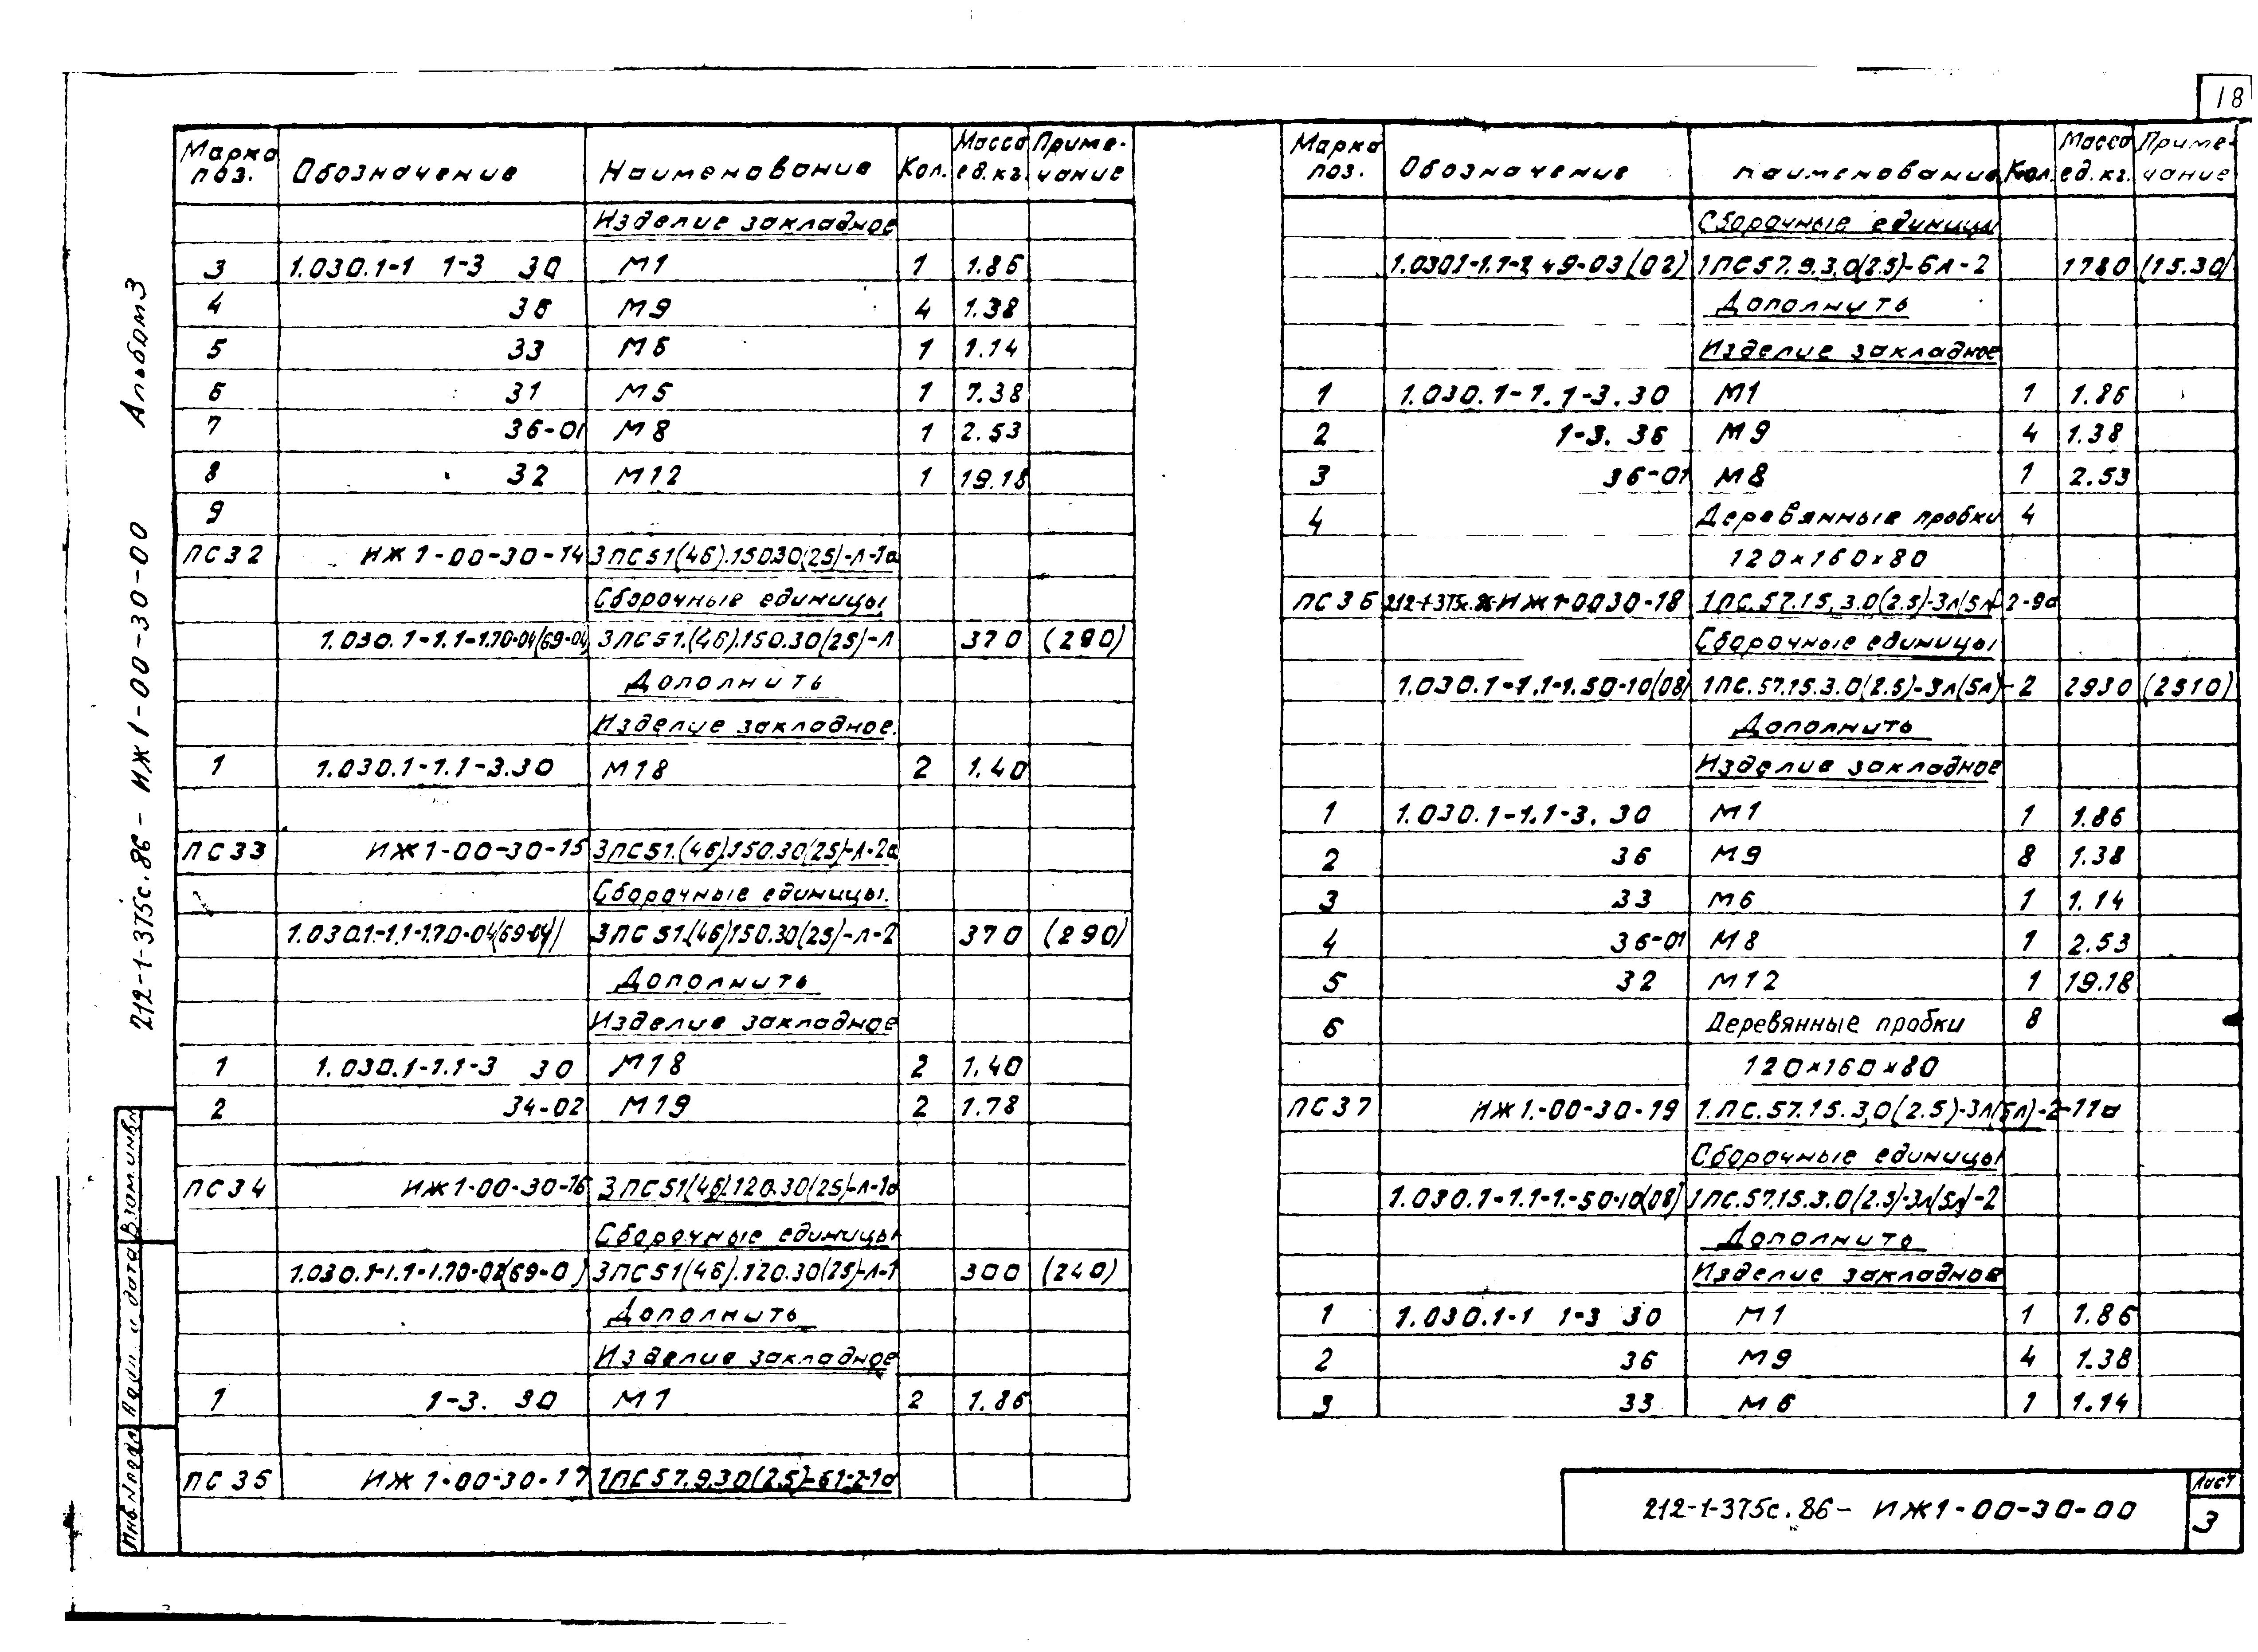 18
Альбом 3
212-1-375с.86- ИЖ1-00-30-00
Марка поз. Обозначение Наименование Кол. Масса ед.кг. Примечание
Изделие закладное
3 1.030.1-1 1-3 30 М1 1 1.86
4 36 М9 4 1.38
5 33 М6 1 1.14
6 31 М5 1 7.38
7 36-01 М8 1 2.53
8 32 М12 1 19.18
9
ПС32 ИЖ1-00-30-14 3ПС51(46).150.30(25)-Л-1а
Сборочные единицы
1.030.1-1.1-1.70-04(69-04) 3ПС51.(46).150.30(25)-Л 370 (290)
Дополнить
Изделие закладное.
1 1.030.1-1.1-3.30 М18 2 1.40
ПС33 ИЖ1-00-30-15 3ПС51.(46).150.30(25)-Л-2а
Сборочные единицы.
1.030.1-1.1-1.70-04(69-04) 3ПС51.(46)150.30(25)-Л-2 370 (290)
Дополнить
Изделие закладное
1 1.030.1-1.1-3 30 М18 2 1.40
2 34-02 М19 2 1.78
ПС34 ИЖ1-00-30-16 3ПС51(46).120.30(25)-Л-1а
Сборочные единицы
1.030.1-1.1-1.70-02(69-0 ) 3ПС51(46).120.30(25)-Л-1 300 (240)
Дополнить
Изделие закладное
1 1-3. 30 М1 2 1.86
ПС35 ИЖ1-00-30-17 1ПС57.9.30(2.5)-6Л-2-1а
Марка поз. Обозначение Наименование Кол. Масса ед.кг. Примечание
Сборочные единицы
1.030.1-1.1-1 49-03(02) 1ПС57.9.3.0(2.5)-6Л-2 1780 (15.30)
Дополнить
Изделие закладное
1 1.030.1-1.1-3.30 М1 1 1.86
2 1-3. 36 М9 4 1.38
3 36-01 М8 1 2.53
4 Деревянные пробки 4
120×160×80
ПС36 212-1-375с.86-ИЖ1-0030-18 1ПС.57.15.3.0(2.5)-3Л(5Л)-2-9а
Сборочные единицы
1.030.1-1.1-1.50-10(08) 1ПС.57.15.3.0(2.5)-3Л(5Л)-2 2930 (2510)
Дополнить
Изделие закладное
1 1.030.1-1.1-3. 30 М1 1 1.86
2 36 М9 8 1.38
3 33 М6 1 1.14
4 36-01 М8 1 2.53
5 32 М12 1 19.18
6 Деревянные пробки 8
120×160×80
ПС37 ИЖ1.-00-30-19 1.ПС.57.15.3.0(2.5)-3Л(5Л)-2-11а
Сборочные единицы
1.030.1-1.1-1.-50-10(08) 1ПС.57.15.3.0(2.5)-3Л(5Л)-2
Дополнить
Изделие закладное
1 1.030.1-1 1-3 30 М1 1 1.86
2 36 М9 4 1.38
3 33 М6 1 1.14
Инв.№подл. Подп. и дата Взам.инв.№
212-1-375с.86- ИЖ1-00-30-00
Лист
3